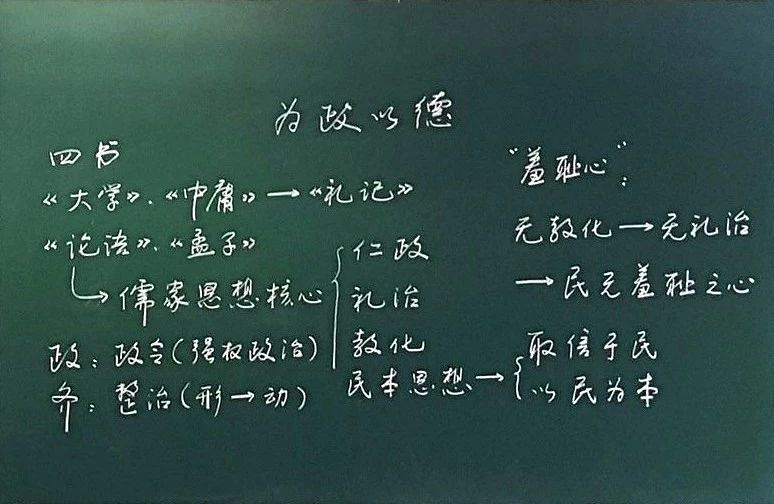 为政以德
四书
《大学》.《中庸》→《礼记》
《论语》.《孟子》
↳儒家思想核心{
仁政
礼治
教化
民本思想→{
取信于民
以民为本
政：政令(强权政治)
齐：整治(形→动)
"羞耻心"：
无教化→无礼治
→民无羞耻之心